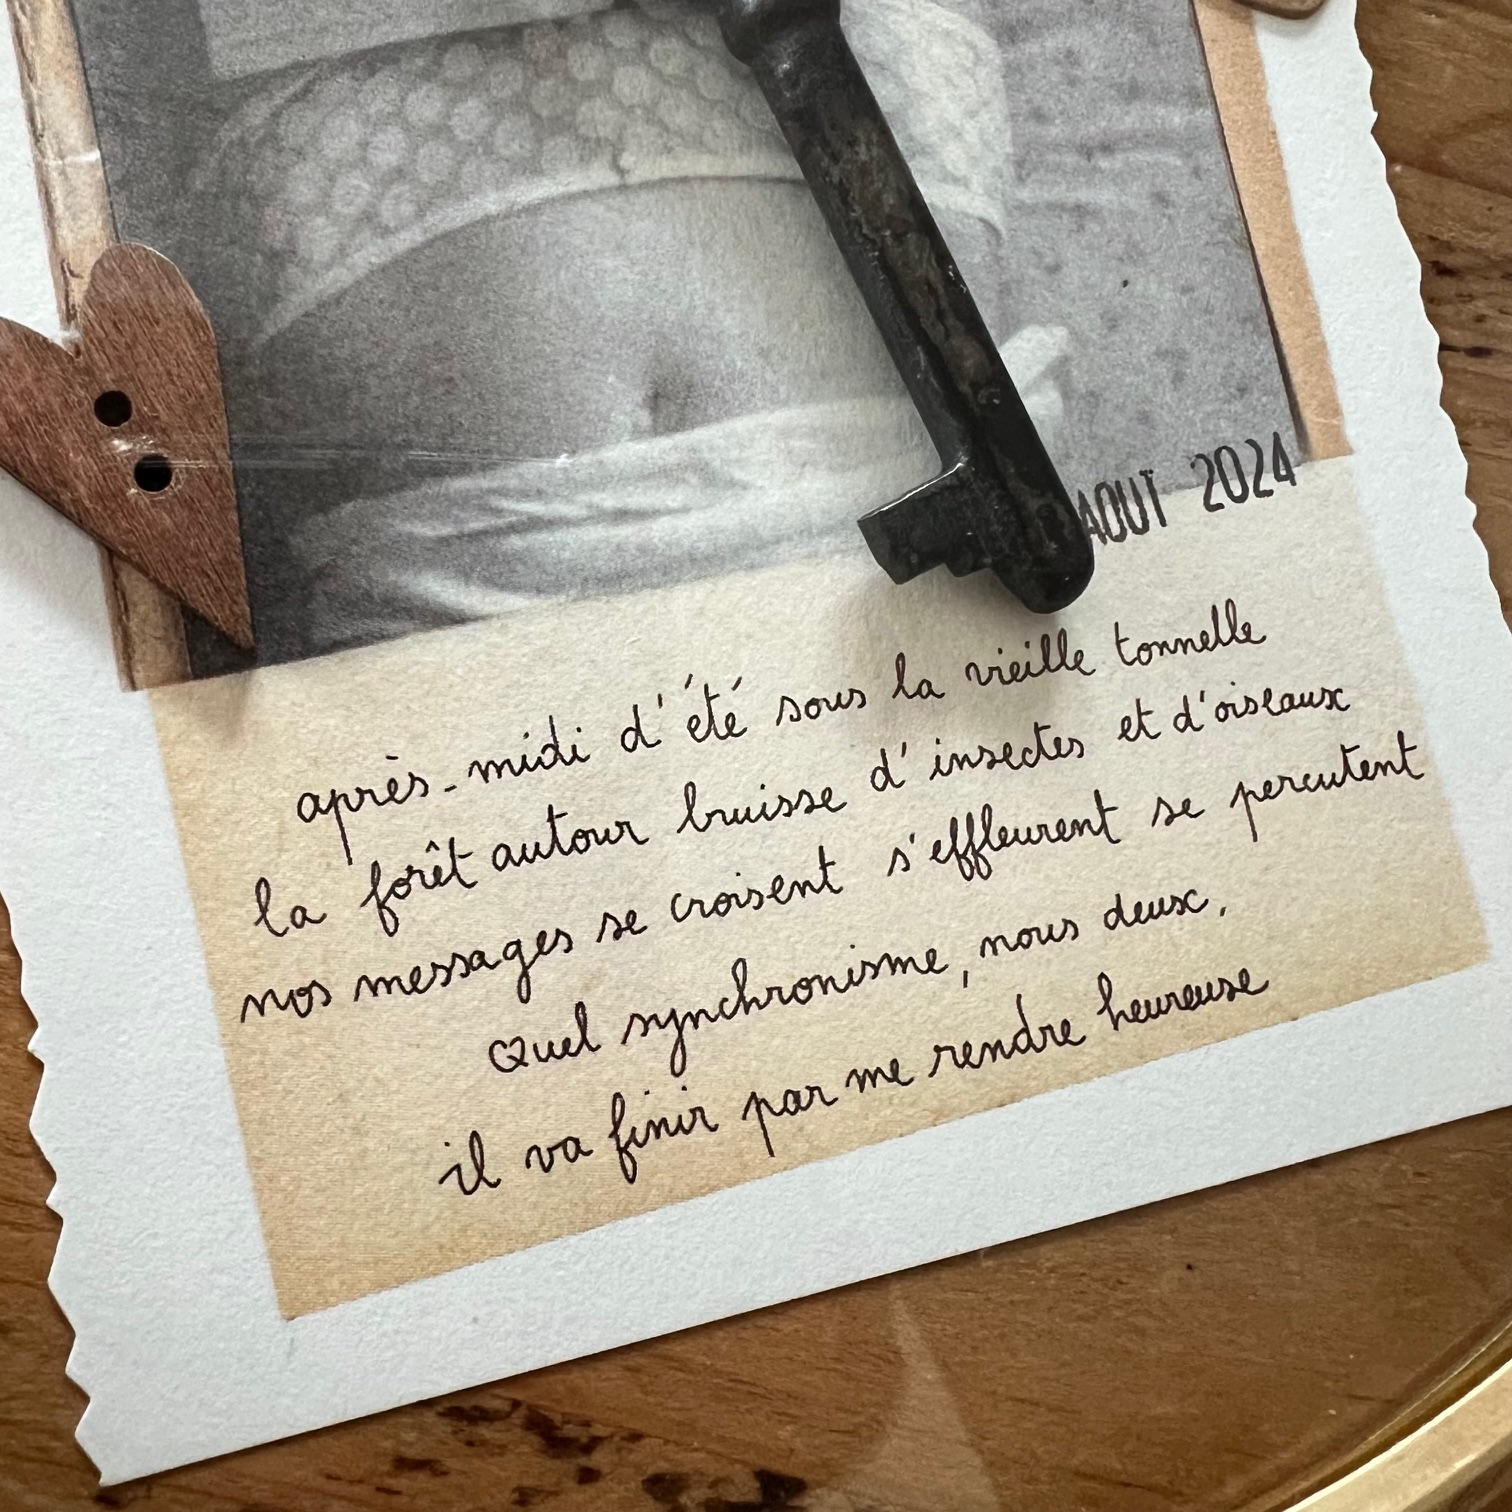 AOUT 2024
après-midi d'été sous la vieille tonnelle
la forêt autour bruisse d'insectes et d'oiseaux
nos messages se croisent s'effleurent se percutent
Quel synchronisme, nous deux,
il va finir par me rendre heureuse